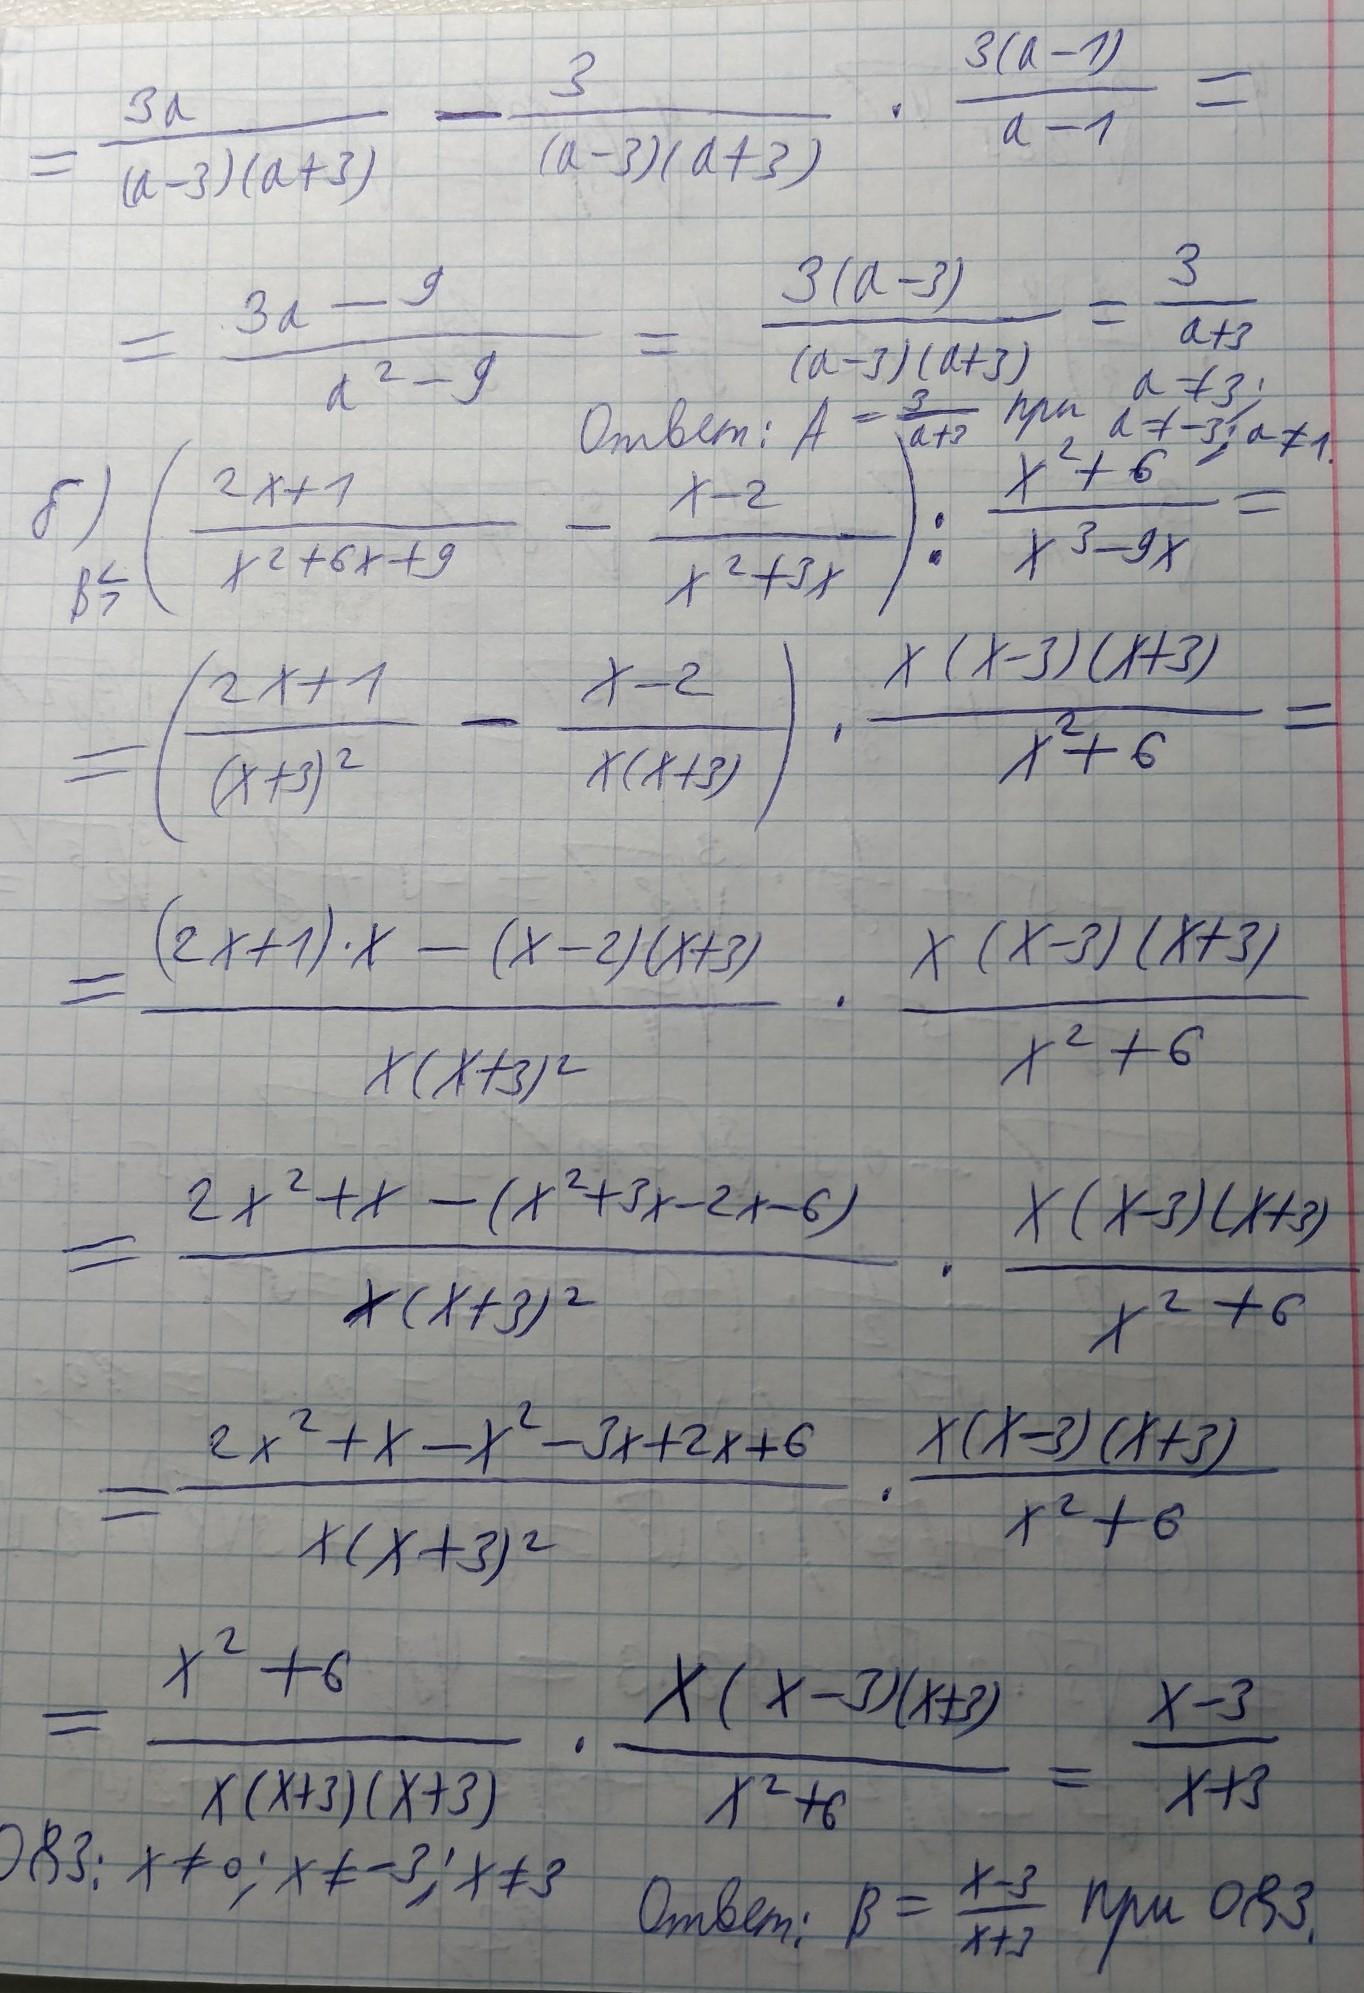 = 3a/((a-3)(a+3)) - 3/((a-3)(a+3)) · 3(a-1)/(a-1) =
= (3a-9)/(a²-9) = 3(a-3)/((a-3)(a+3)) = 3/(a+3)
Ответ: A = 3/(a+3) при a≠3; a≠-3; a≠1.
б) B = ((2x+1)/(x²+6x+9) - (x-2)/(x²+3x)) : (x²+6)/(x³-9x) =
= ((2x+1)/(x+3)² - (x-2)/(x(x+3))) · x(x-3)(x+3)/(x²+6) =
= ((2x+1)·x - (x-2)(x+3))/(x(x+3)²) · x(x-3)(x+3)/(x²+6)
= (2x²+x-(x²+3x-2x-6))/(x(x+3)²) · x(x-3)(x+3)/(x²+6)
= (2x²+x-x²-3x+2x+6)/(x(x+3)²) · x(x-3)(x+3)/(x²+6)
= (x²+6)/(x(x+3)(x+3)) · x(x-3)(x+3)/(x²+6) = (x-3)/(x+3)
ОВЗ: x≠0; x≠-3; x≠3
Ответ: B = (x-3)/(x+3) при ОВЗ.